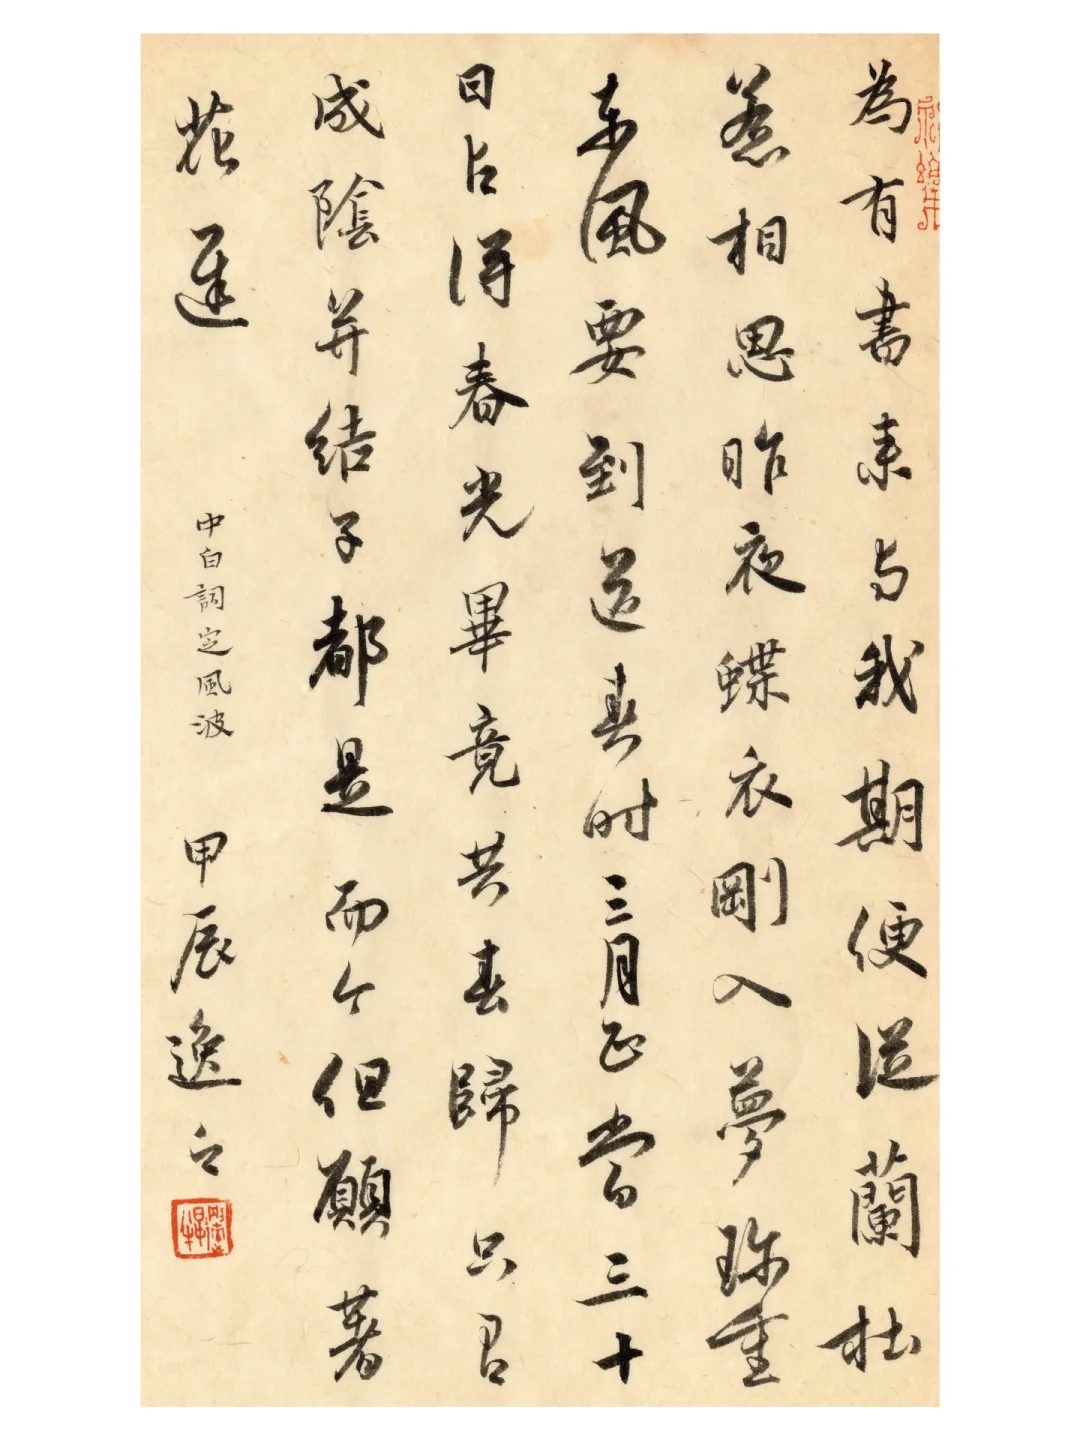 為有書来与我期便從蘭杜
惹相思昨夜蝶衣剛入夢珎重
東風要到送春时三月正當三十
日占得春光畢竟共春歸只有
成陰并結子都是而今但願著
花遲
中白詞定風波
甲辰逸之